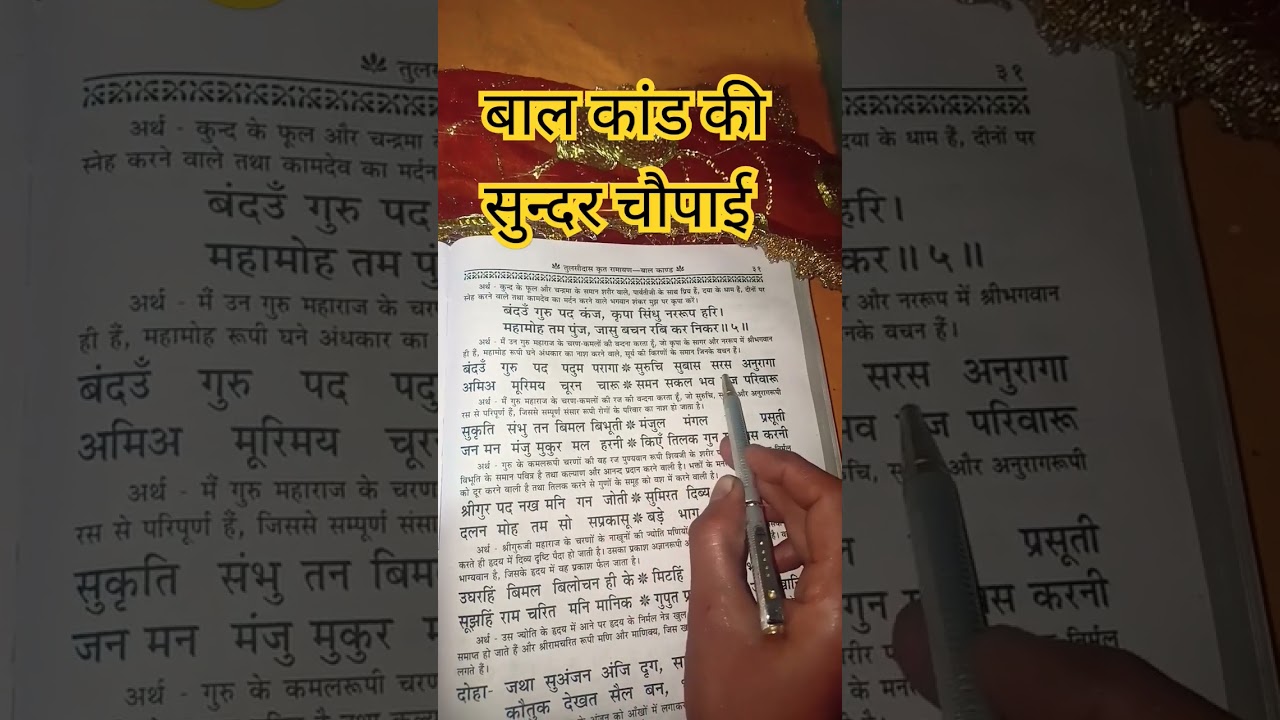 बाल कांड की
सुन्दर चौपाई
तुलसीदास कृत रामायण—बाल काण्ड
३१
अर्थ - कुन्द के फूल और चन्द्रमा के समान शरीर वाले, पार्वतीजी के साथ प्रिय हैं, दया के धाम हैं, दीनों पर
स्नेह करने वाले तथा कामदेव का मर्दन करने वाले भगवान शंकर मुझ पर कृपा करें।
बंदउँ गुरु पद कंज, कृपा सिंधु नररूप हरि।
महामोह तम पुंज, जासु बचन रबि कर निकर॥५॥
अर्थ - मैं उन गुरु महाराज के चरण-कमलों की वन्दना करता हूँ, जो कृपा के सागर और नररूप में श्रीभगवान
ही हैं, महामोह रूपी घने अंधकार का नाश करने वाले, सूर्य की किरणों के समान जिनके वचन हैं।
बंदउँ गुरु पद पदुम परागा * सुरुचि सुबास सरस अनुरागा
अमिअ मूरिमय चूरन चारू * समन सकल भव परिवारू
अर्थ - मैं गुरु महाराज के चरण-कमलों की रज की वन्दना करता हूँ, जो सुरुचि, और अनुरागरूपी
रस से परिपूर्ण हैं, जिससे सम्पूर्ण संसार रूपी रोगों के परिवार का नाश हो जाता है।
सुकृति संभु तन बिमल बिभूती * मंजुल मंगल प्रसूती
जन मन मंजु मुकुर मल हरनी * किएँ तिलक गुन करनी
अर्थ - गुरु के कमलरूपी चरणों की वह रज पुण्यवान रूपी शिवजी के शरीर निर्मल
विभूति के समान पवित्र है तथा कल्याण और आनन्द प्रदान करने वाली है। भक्तों के मन
को दूर करने वाली है तथा तिलक करने से गुणों के समूह को वश में करने वाली है।
श्रीगुर पद नख मनि गन जोती * सुमिरत दिब्य
दलन मोह तम सो सप्रकासू * बड़े भाग
अर्थ - श्रीगुरुजी महाराज के चरणों के नाखूनों की ज्योति मणियों
करते ही हृदय में दिव्य दृष्टि पैदा हो जाती है। उसका प्रकाश अज्ञानरूपी
भाग्यवान है, जिसके हृदय में वह प्रकाश फैल जाता है।
उघरहिं बिमल बिलोचन ही के * मिटहिं
सूझहिं राम चरित मनि मानिक * गुपुत
अर्थ - उस ज्योति के हृदय में आने पर हृदय के निर्मल नेत्र खुल
समाप्त हो जाते हैं और श्रीरामचरित रूपी मणि और माणिक्य, जिस
लगते हैं।
दोहा- जथा सुअंजन अंजि दृग,
कौतुक देखत सैल बन,